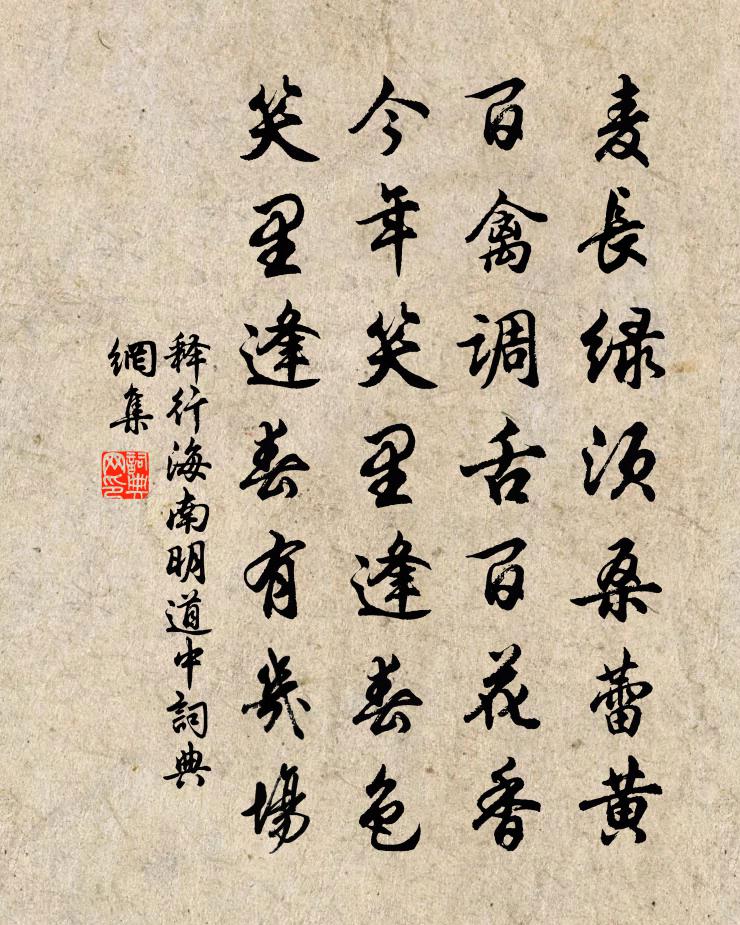 麦長緑須桑蕾黄
百禽調舌百花香
今年笑里逢春色
笑里逢春有幾場
释行海南明道中詞典
網集
詞典
网印